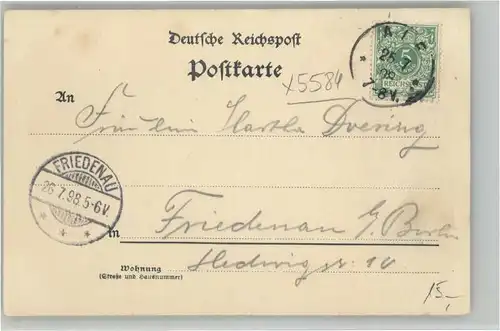 Deutsche Reichspost
Postkarte
x5584
25 7
98
7-8V.
5
An
Fräulein Martha Doering
FRIEDENAU
26.7.98.5-6V.
* * *
in
Friedenau b/ Berlin
Wohnung
(Straße und Hausnummer)
Hedwigstr. 10
15,-